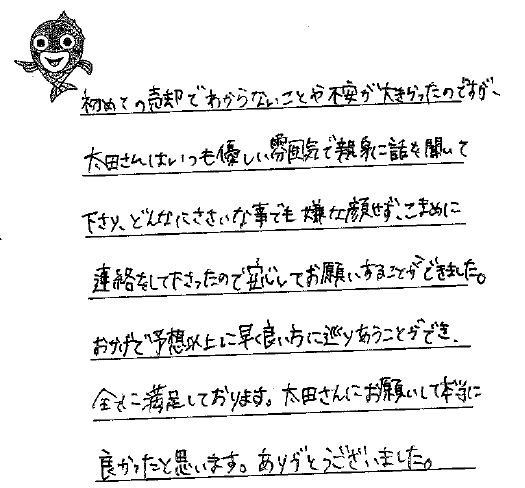 初めての売却でわからないことや不安が大きかったのですが、
太田さんはいつも優しい雰囲気で親身に話を聞いて
下さり、どんなにささいな事でも嫌な顔せず、こまめに
連絡をして下さったので安心してお願いすることができました。
おかげで予想以上に早く良い方に巡りあうことができ、
全てに満足しております。太田さんにお願いして本当に
良かったと思います。ありがとうございました。